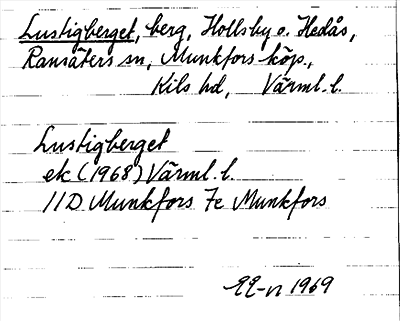 Lustigberget, berg, Hollsby o. Hedås,
Ransäters sn, Munkfors köp.,
Kils hd, Värml. l.
Lustigberget
ek (1968) Värml. l.
11D Munkfors 7e Munkfors
1969